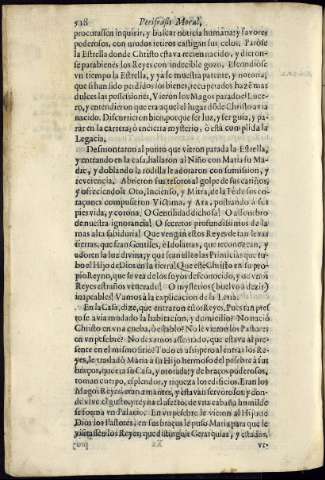 528 Perifrasis Moral,
procurassen inquirir, y buscar noticia humana; y favores
poderosos, con mudos retiros castigan sus celos. Paròse
la Estrella donde Christo estava recien nacido, y dieron-
se parabienes los Reyes con indecible gozo. Escondiose
vn tiempo la Estrella, y ya se muestra patente, y notoria,
que si han sido perdidos los bienes, recuperados haze mas
dulces las possesiones. Vieron los Magos parado el Luze-
ro, y entendieron que era aquel el lugar dõde Christo avia
nacido. Discurrieron bien, porque ser luz, y ser guia, y pa-
rar en la carrera; ò encierra mysterio, ò està complida la
Legacia.
Desmontaron al punto que vieron parada la Estrella,
y entrando en la casa, hallaron al Niño con Maria su Ma-
dre, y doblando la rodilla le adoraron con summission, y
reverencia. Abrieron sus tesoros al golpe de sus cariños,
y ofreciendole Oro, Incienso, y Mirra, de la Fè de sus co-
raçones compusieron Victima, y Ara, postrando à sus
pies vida, y corona. O Gentilidad dichosa! O assombro
de nuestra ignorancia! O secretos profundissimos de la
mas alta sabiduria! Que vengan estos Reyes de tan lexas
tierras, que sean Gentiles, è Idolatras, que reconozcan, y
adoren la luz divina; y que sean ellos las Primicias que tu-
bo al Hijo de Dios en la tierra! Que estè Christo en su pro-
pio Reyno, que se vea de los suyos desconocido, y de vnos
Reyes estraños venerado! O mysterios (buelvo a dezir)
incapables! Vamos à la explicacion de la Letra.
En la Casa, dize, que entraron estos Reyes. Pues tan pres-
to se avia mudado la habitacion, y domicilio? No naciò
Christo en vna cueba, ò establo? No le vieron los Pastores
en vn pesebre? No davamos assentado, que estava al pre-
sente en el mismo sitio? Todo es assi; pero al entrar los Re-
yes, le trasladò Maria à su Hijo hermoso del pesebre à sus
braços, que era su Casa, y morada; y de braços poderosos,
toman cuerpo, esplendor, y riqueza los edificios. Eran los
Magos Reyes, eran amantes, y estavan fervorosos; y don-
de vive el gusto, y reyna el afecto, de vna cabaña humilde
se forma vn Palacio. En vn pesebre le vieron al Hijo de
Dios los Pastores, en sus braços le puso Maria para que le
visitassen los Reyes; que distinguir Gerarquias, y estados,